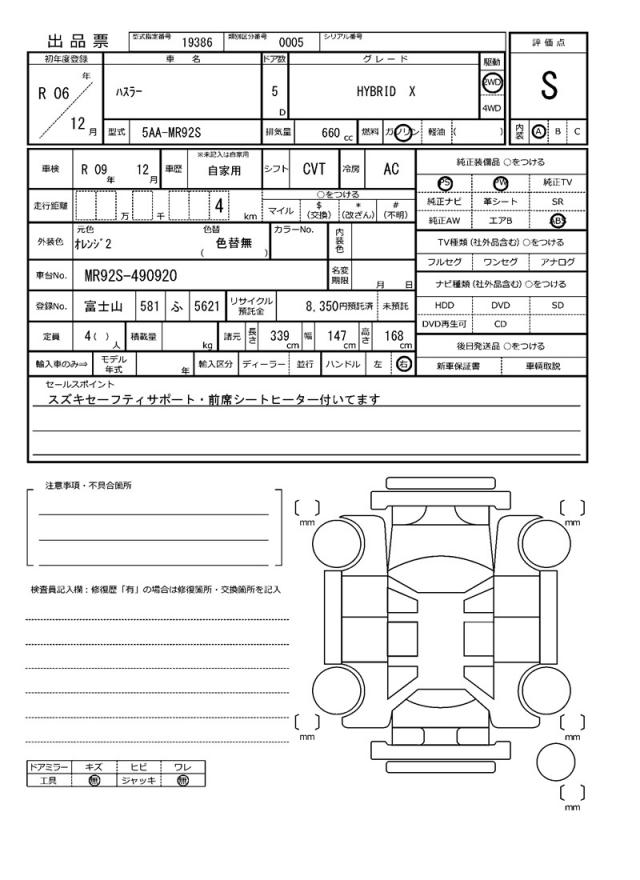 出品票 型式指定番号 19386 類別区分番号 0005 シリアル番号
初年度登録 車名 ドア数 グレード 駆動 評価点
R 06 年 12 月 ハスラー 5 D HYBRID X 2WD 4WD S
型式 5AA-MR92S 排気量 660 cc 燃料 ガソリン 軽油 ( ) 内装 A B C
車検 R 09 年 12 月 車歴 ※未記入は自家用 自家用 シフト CVT 冷房 AC 純正装備品 ○をつける
PS PW 純正TV
走行距離 万 千 4 km ○をつける 純正ナビ 革シート SR
マイル $ (交換) * (改ざん) # (不明) 純正AW エアB ABS
外装色 元色 オレンジ2 色替 色替無 ( ) カラーNo. 内装色 TV種類 (社外品含む) ○をつける
フルセグ ワンセグ アナログ
車台No. MR92S-490920 名変期限 月 日 ナビ種類 (社外品含む) ○をつける
登録No. 富士山 581 ふ 5621 リサイクル預託金 8,350円預託済 未預託 HDD DVD SD
DVD再生可 CD
定員 4 ( ) 人 積載量 kg 諸元 長さ 339 cm 幅 147 cm 高さ 168 cm 後日発送品 ○をつける
輸入車のみ⇒ モデル年式 年 輸入区分 ディーラー 並行 ハンドル 左 右 新車保証書 車輌取説
セールスポイント
スズキセーフティサポート・前席シートヒーター付いてます
注意事項・不具合箇所
mm mm
検査員記入欄：修復歴「有」の場合は修復箇所・交換箇所を記入
mm mm
ドアミラー キズ ヒビ ワレ
工具 無 ジャッキ 無
mm